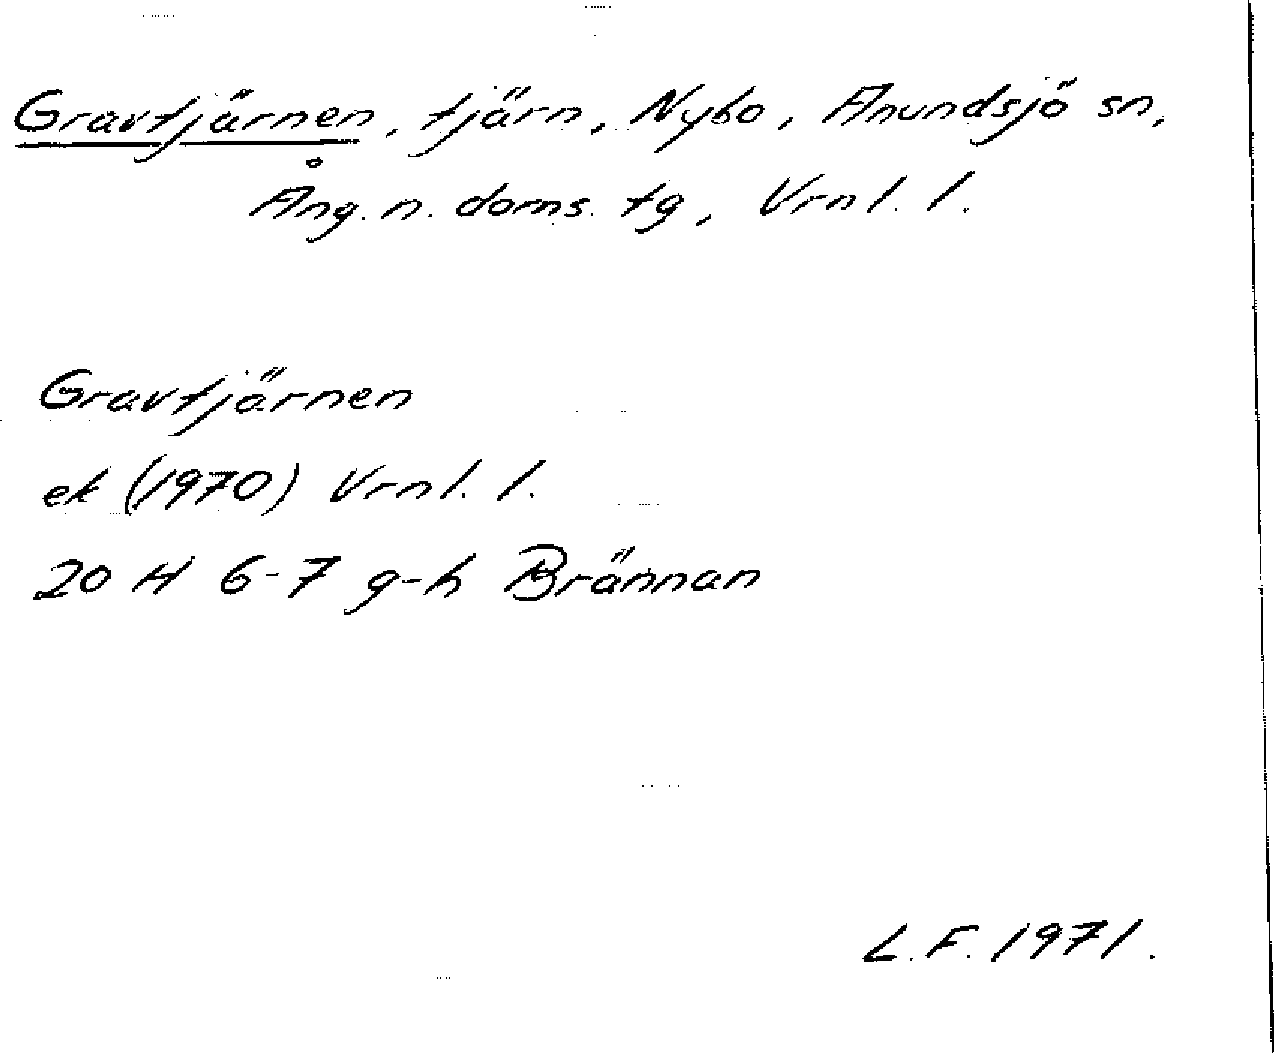 Gravtjärnen, tjärn, Nybo, Anundsjö sn,
Ång. n. doms. tg, Vrnl. l.
Gravtjärnen
ek (1970) Vrnl. l.
20 H 6-7 g-h Brännan
L.F. 1971.